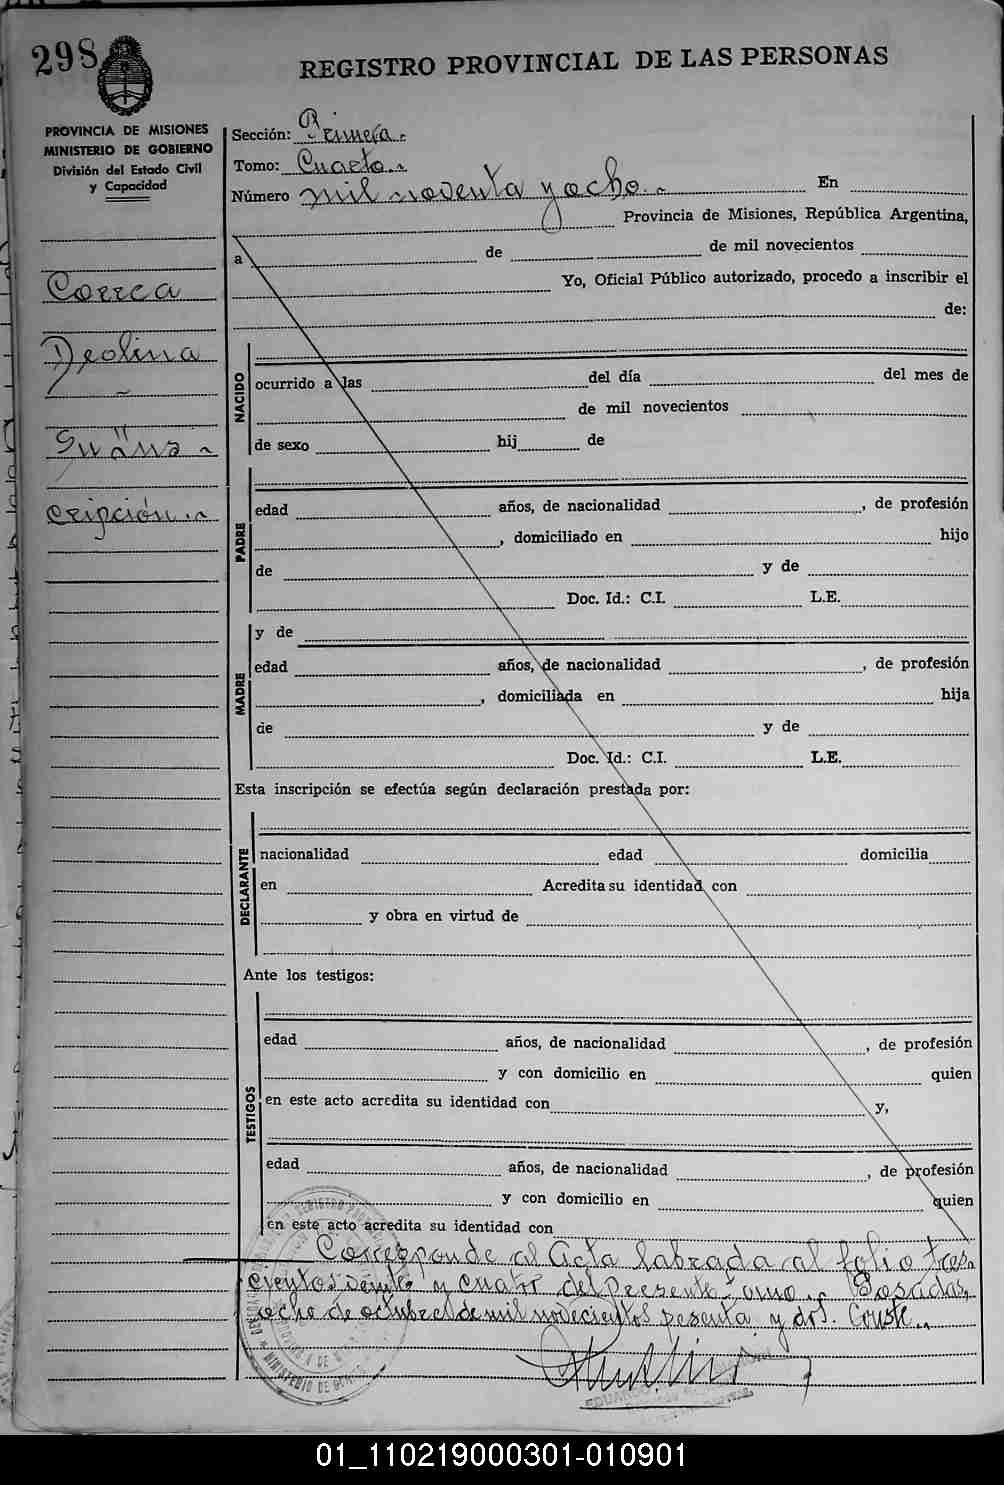 298
REGISTRO PROVINCIAL DE LAS PERSONAS
PROVINCIA DE MISIONES
MINISTERIO DE GOBIERNO
División del Estado Civil
y Capacidad
Correa
Deolina
cripción.
Sección: Primera.
Tomo: Cuarto.
Número mil noventa y ocho. En
Provincia de Misiones, República Argentina,
a de de mil novecientos
Yo, Oficial Público autorizado, procedo a inscribir el
de:
NACIDO
ocurrido a las del día del mes de
de mil novecientos
de sexo hij de
PADRE
edad años, de nacionalidad , de profesión
, domiciliado en hijo
de y de
Doc. Id.: C.I. L.E.
MADRE
y de
edad años, de nacionalidad , de profesión
, domiciliada en hija
de y de
Doc. Id.: C.I. L.E.
Esta inscripción se efectúa según declaración prestada por:
DECLARANTE
nacionalidad edad domicilia
en Acredita su identidad con
y obra en virtud de
Ante los testigos:
TESTIGOS
edad años, de nacionalidad , de profesión
y con domicilio en quien
en este acto acredita su identidad con y,
edad años, de nacionalidad , de profesión
y con domicilio en quien
en este acto acredita su identidad con
Corresponde al Acta labrada al folio tres-
cientos veinte y cuatro del presente tomo. Posadas,
ocho de octubre de mil novecientos sesenta y dos. Conste.
MINISTERIO DE
01_110219000301-010901